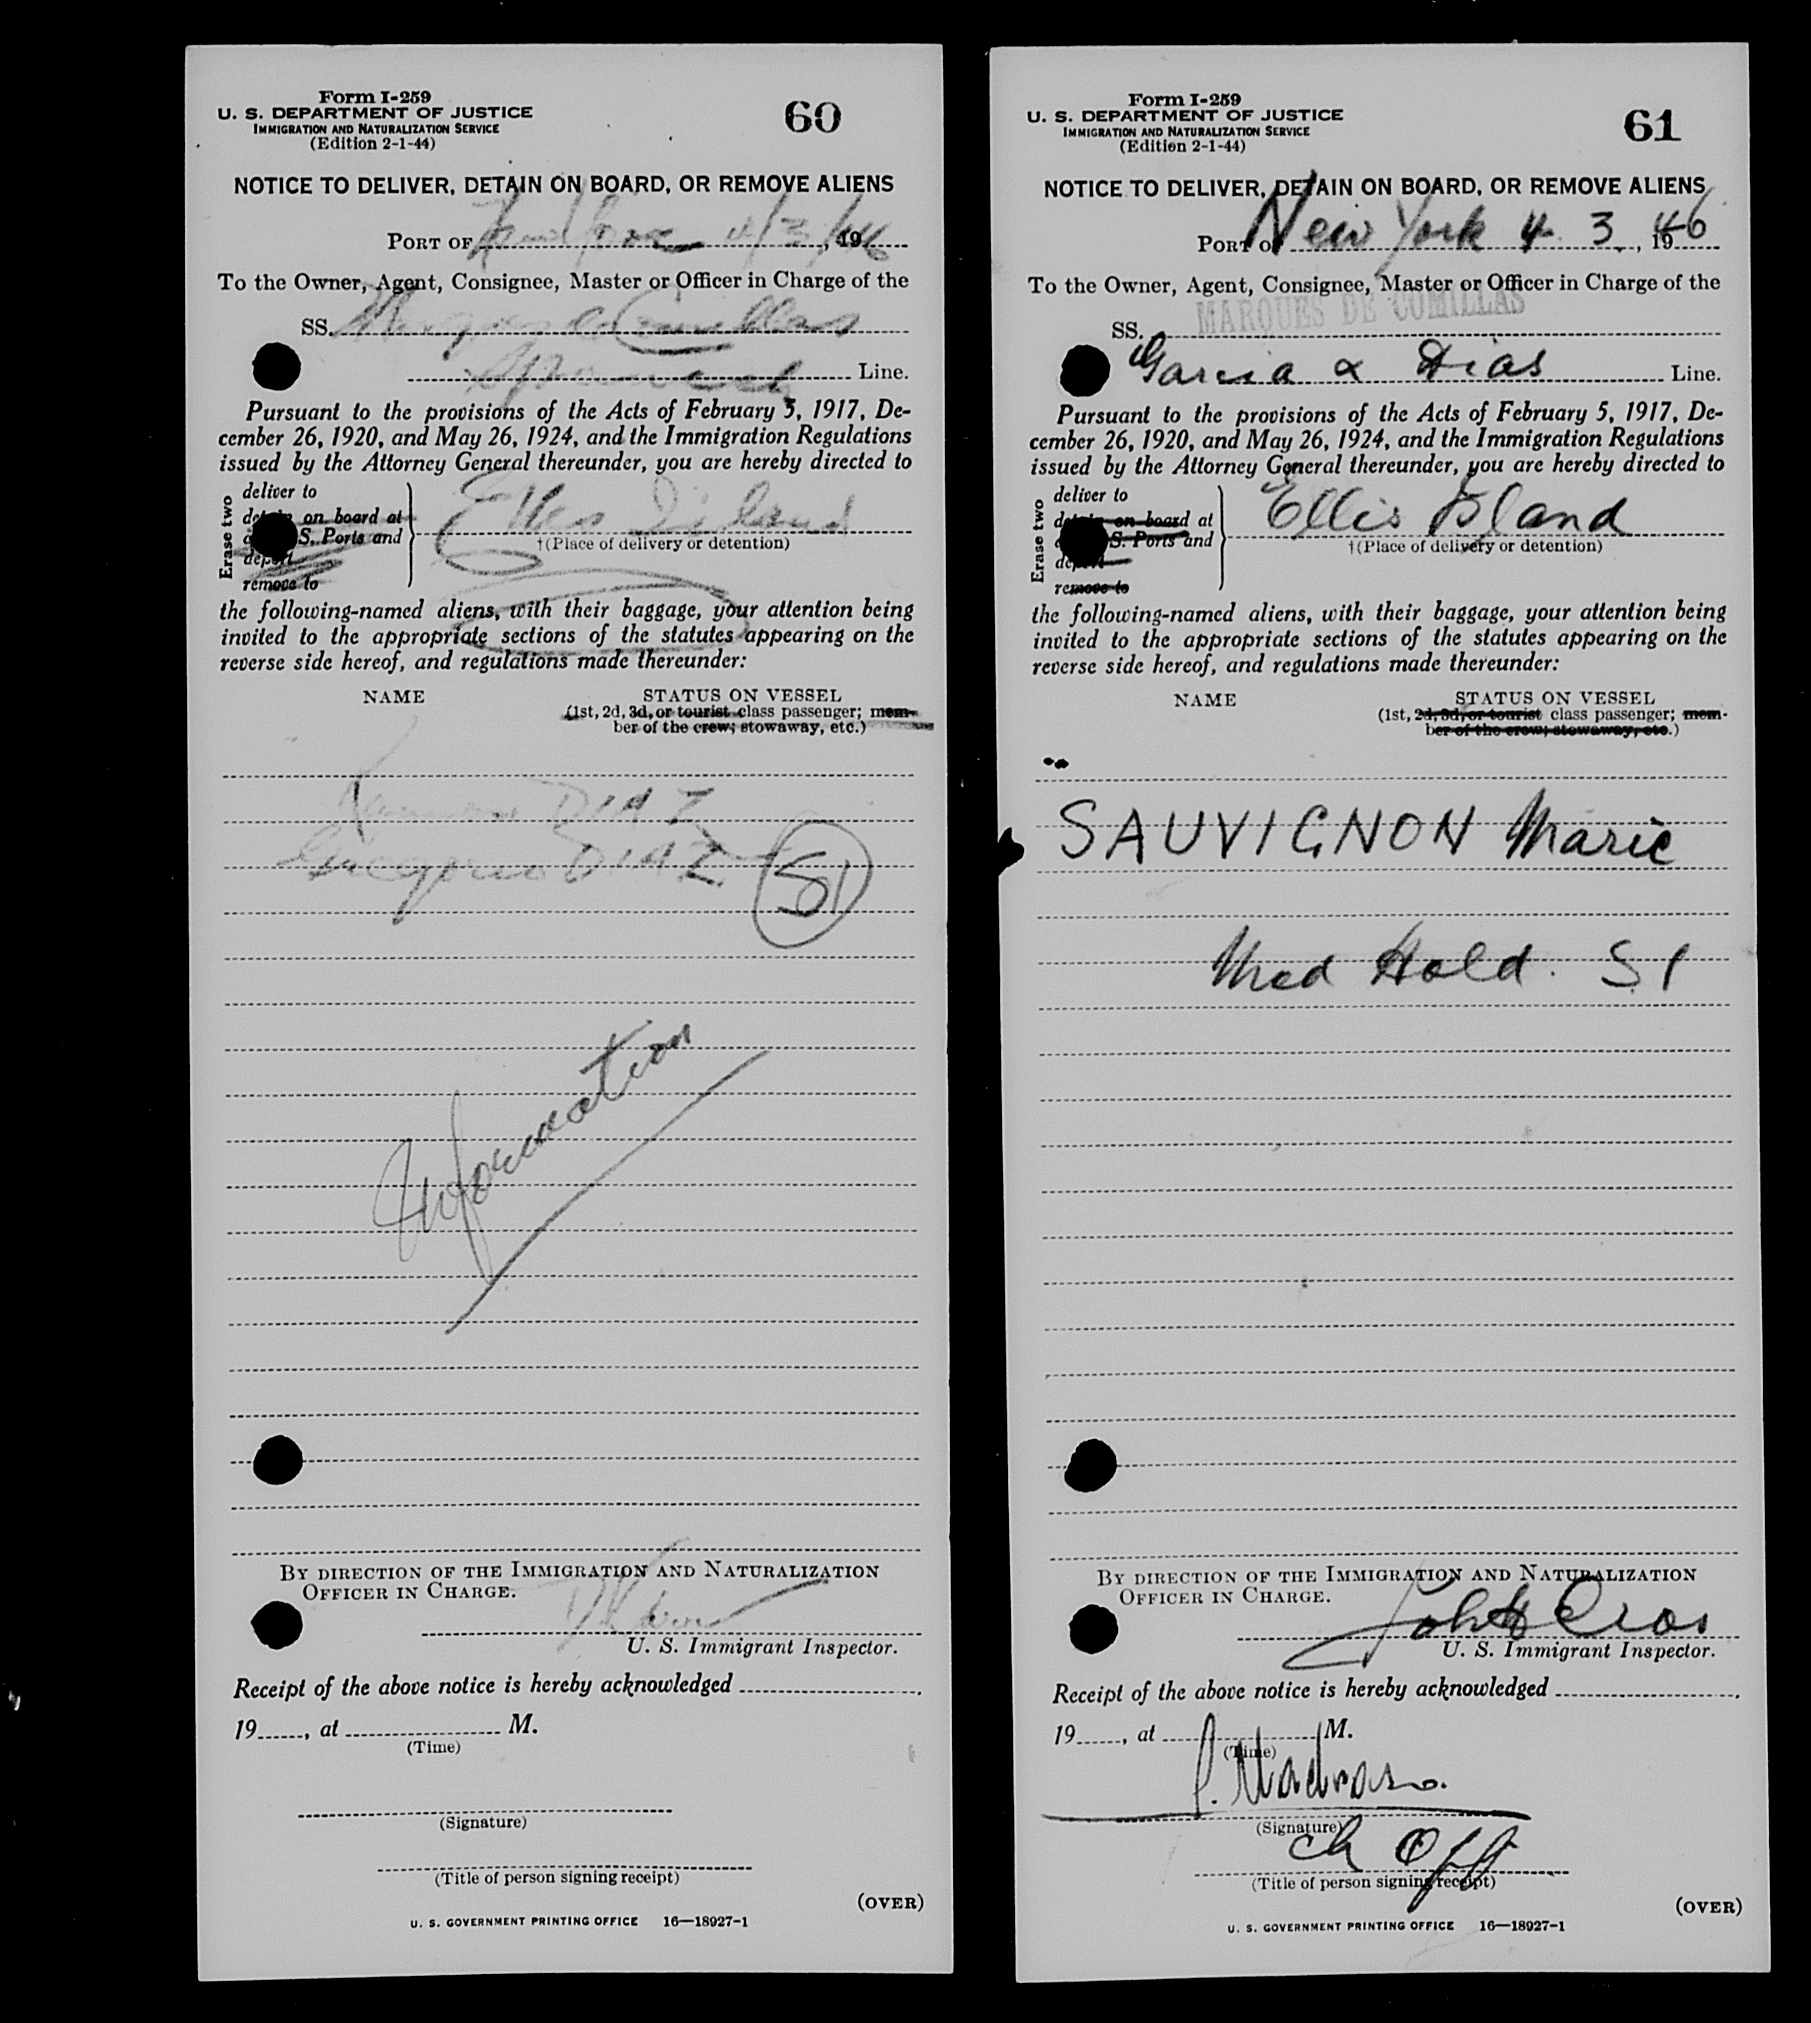 Form I-259
U. S. DEPARTMENT OF JUSTICE
IMMIGRATION AND NATURALIZATION SERVICE
(Edition 2-1-44)
60
NOTICE TO DELIVER, DETAIN ON BOARD, OR REMOVE ALIENS
PORT OF New York 4/3/, 1946
To the Owner, Agent, Consignee, Master or Officer in Charge of the
SS. Marques de Comillas
Spanish Line.
Pursuant to the provisions of the Acts of February 5, 1917, De-
cember 26, 1920, and May 26, 1924, and the Immigration Regulations
issued by the Attorney General thereunder, you are hereby directed to
Erase two
deliver to
on board at
S. Ports and
deport
remove to
Ellis Island
†(Place of delivery or detention)
the following-named aliens, with their baggage, your attention being
invited to the appropriate sections of the statutes appearing on the
reverse side hereof, and regulations made thereunder:
NAME
STATUS ON VESSEL
(1st, 2d, 3d, or tourist class passenger; mem-
ber of the crew; stowaway, etc.)
DIAZ
Gregorio DIAZ
SI
Information
BY DIRECTION OF THE IMMIGRATION AND NATURALIZATION
OFFICER IN CHARGE.
U. S. Immigrant Inspector.
Receipt of the above notice is hereby acknowledged
19, at M.
(Time)
(Signature)
(Title of person signing receipt)
(OVER)
U. S. GOVERNMENT PRINTING OFFICE 16—18927-1
Form I-259
U. S. DEPARTMENT OF JUSTICE
IMMIGRATION AND NATURALIZATION SERVICE
(Edition 2-1-44)
61
NOTICE TO DELIVER, DETAIN ON BOARD, OR REMOVE ALIENS
PORT OF New York 4 3, 1946
To the Owner, Agent, Consignee, Master or Officer in Charge of the
SS. MARQUES DE COMILLAS
Garcia & Dias Line.
Pursuant to the provisions of the Acts of February 5, 1917, De-
cember 26, 1920, and May 26, 1924, and the Immigration Regulations
issued by the Attorney General thereunder, you are hereby directed to
Erase two
deliver to
on board at
S. Ports and
remove to
Ellis Island
†(Place of delivery or detention)
the following-named aliens, with their baggage, your attention being
invited to the appropriate sections of the statutes appearing on the
reverse side hereof, and regulations made thereunder:
NAME
STATUS ON VESSEL
(1st, 2d, 3d, or tourist class passenger; mem-
ber of the crew; stowaway, etc.)
SAUVIGNON Marie
Med Hold. SI
BY DIRECTION OF THE IMMIGRATION AND NATURALIZATION
OFFICER IN CHARGE.
U. S. Immigrant Inspector.
Receipt of the above notice is hereby acknowledged
19, at M.
(Time)
(Signature)
Ch Off
(Title of person signing receipt)
(OVER)
U. S. GOVERNMENT PRINTING OFFICE 16—18927-1